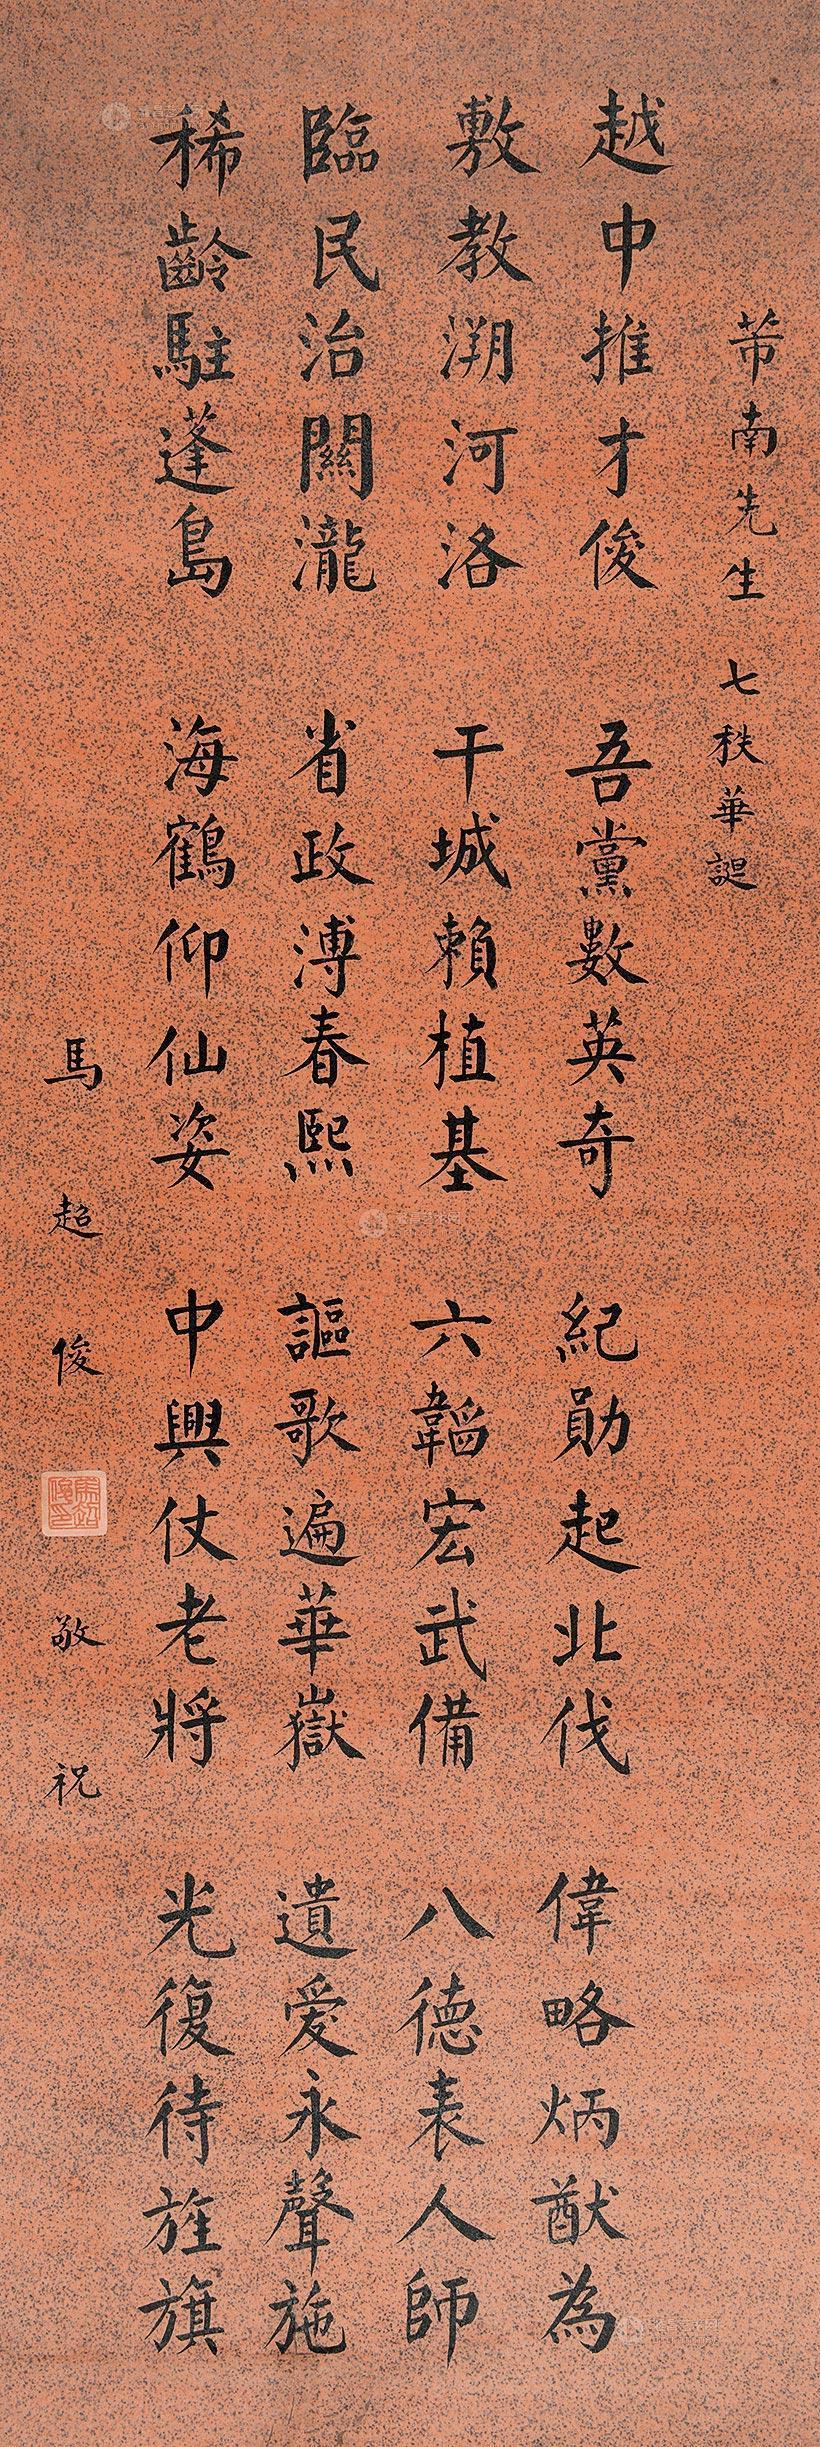 芾南先生 七秩華誕
越中推才俊 吾黨數英奇 紀勛起北伐 偉略炳猷為
敷教溯河洛 干城賴植基 六韜宏武備 八德表人師
臨民治關瀧 省政溥春熙 謳歌遍華嶽 遺愛永聲施
稀齡駐蓬島 海鶴仰仙姿 中興仗老將 光復待旌旗
馬超俊敬祝